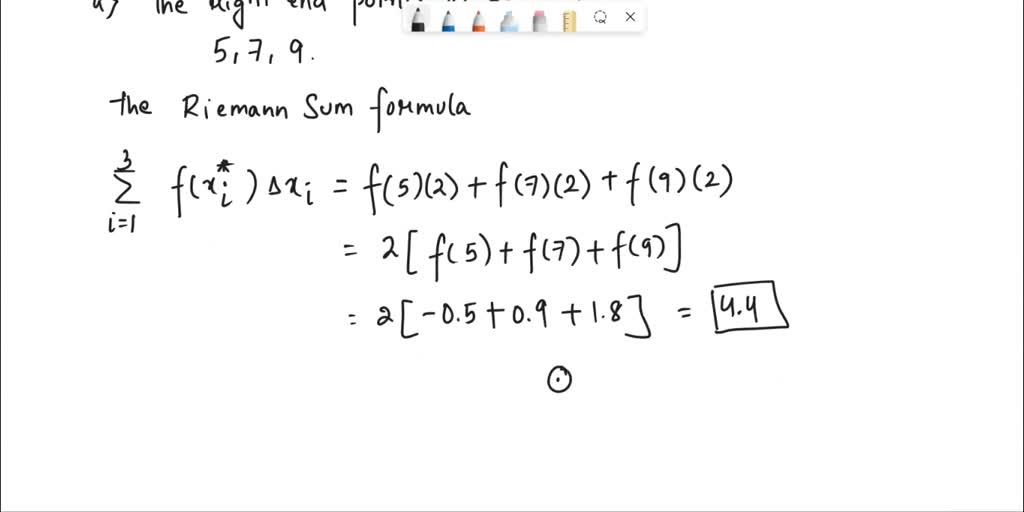 a) The Right end poin
5, 7, 9.
the Riemann Sum formula
3
∑ f(xᵢ*) Δxᵢ = f(5)(2) + f(7)(2) + f(9)(2)
i=1
= 2[f(5) + f(7) + f(9)]
= 2[-0.5 + 0.9 + 1.8] = 4.4